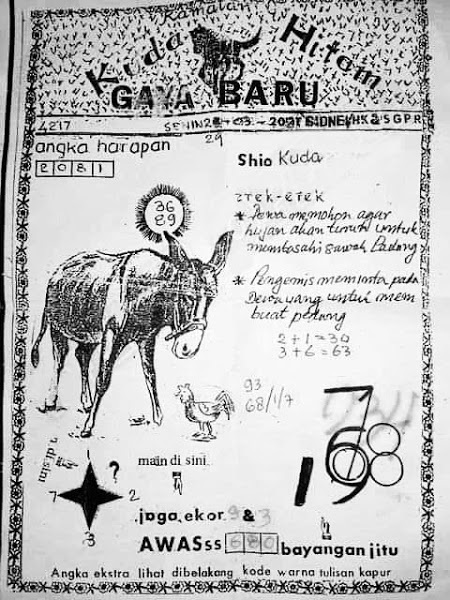 Ramalan
Kuda Hitam
GAYA BARU
SENIN 29
angka harapan
2081
Shio Kuda
36
89
* Dewa memohon agar
hujan akan turun untuk
membasahi sawah Padang
* Pengemis meminta pada
Dewa yang untuk mem
buat pedang
2 + 1 = 30
3 + 6 = 63
93
68/1/7
7
?
2
3
main di sini
jaga ekor 9 & 3
AWASss 680 bayangan jitu
Angka ekstra lihat dibelakang kode warna tulisan kapur